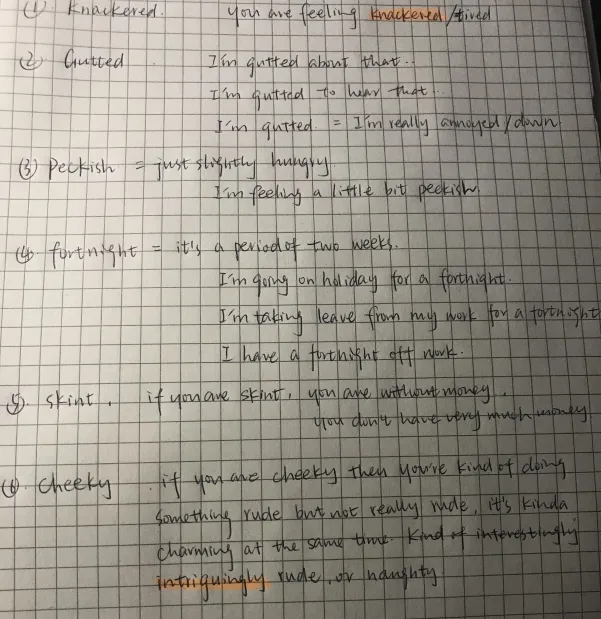 (1) Knackered. you are feeling knackered/tired
(2) Gutted I'm gutted about that..
I'm gutted to hear that..
I'm gutted. = I'm really annoyed/down
(3) Peckish = just slightly hungry
I'm feeling a little bit peckish.
(4) fortnight = it's a period of two weeks.
I'm going on holiday for a forthight.
I'm taking leave from my work for a fortnight
I have a fortnight off work.
(5). skint. if you are skint, you are without money.
you don't have very much money
(6). cheeky. if you are cheeky then you're kind of doing
something rude but not really rude, it's kinda
charming at the same time. Kind of interestingly
intriguingly rude, or naughty